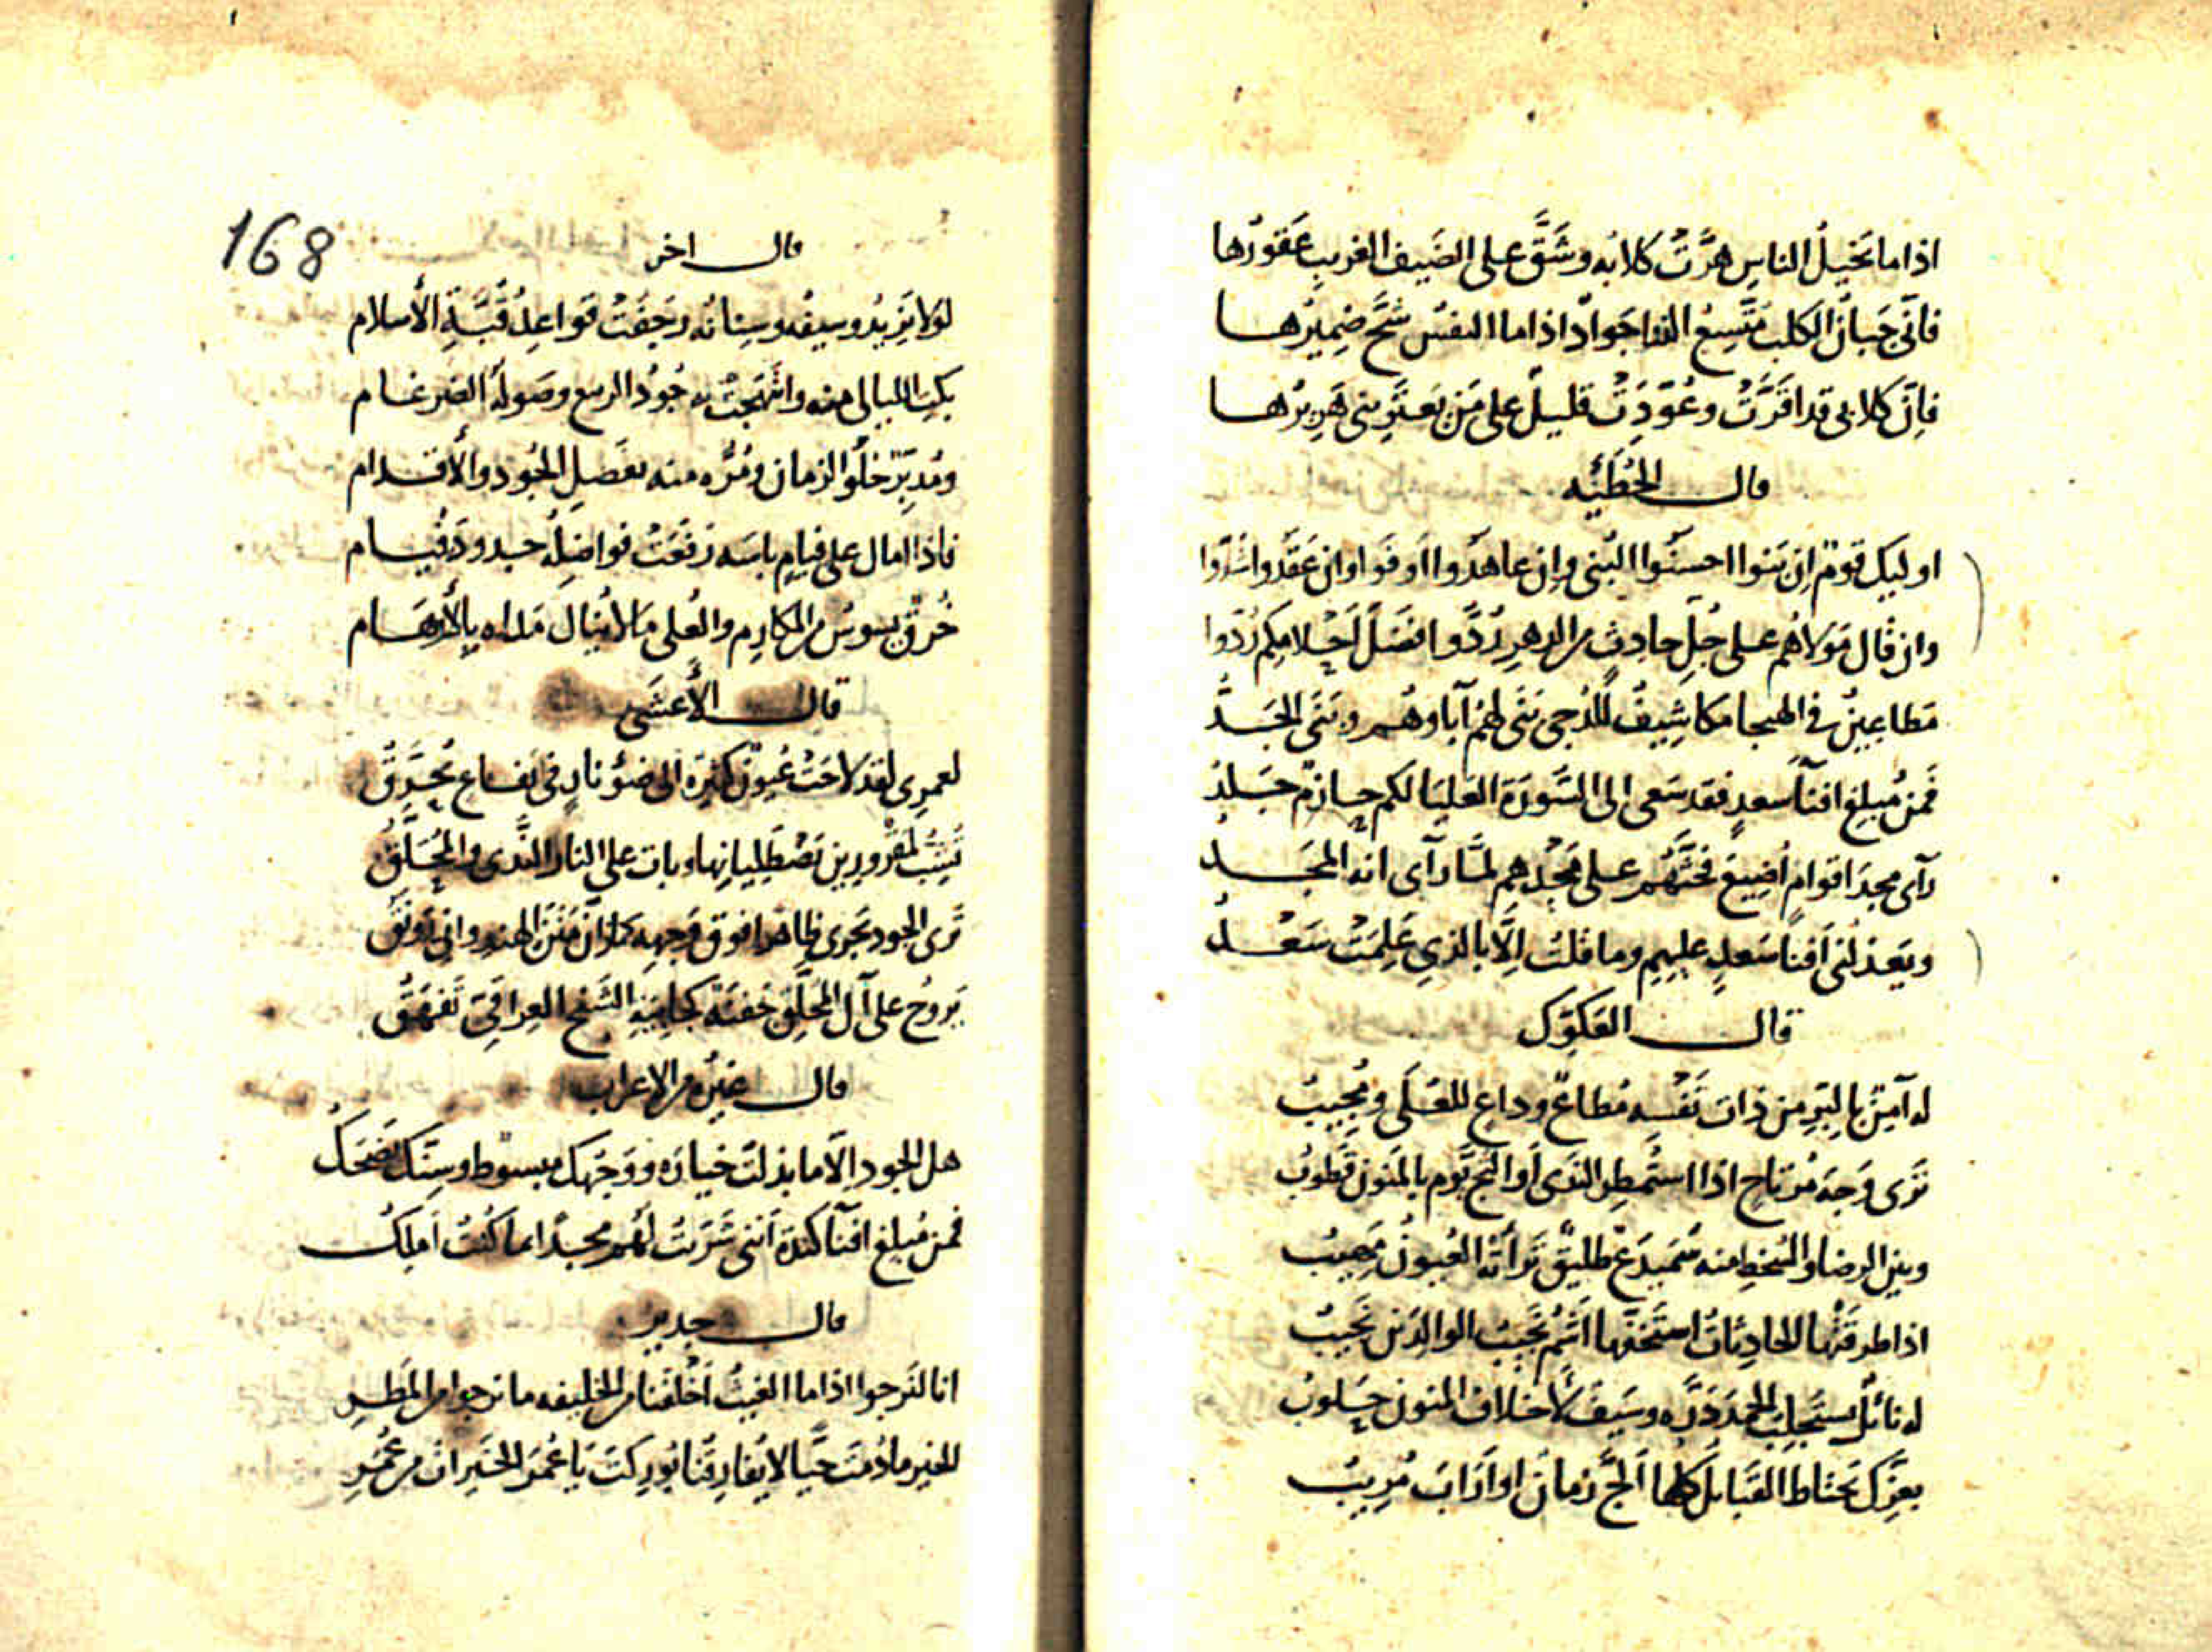 اذا ما بَخيلُ الناسِ هَرَّتْ كلابُه وشَقَّ على الضَيفِ الغريبِ عَقورُها
فانّى جَبانُ الكلب مُتَّسِعُ الفنا جَوادٌ اذا ما النفسُ شَحَّ ضميرُها
فاِنَّ كلابى قد اقَرَّتْ وعُوِّدَتْ قليلٌ على مَن يَعتَرِينى هَرِيرُها
قال الحُطَيْئه
اوليك قومٌ اِن بَنوا احسَنُوا البُنى وإن عاهَدُوا اَوفَوا وان عَقَدُوا شَدّوا
وان قال مَولاهُم على جُلِّ حادِثٍ من الدهرِ رُدّوا فضلَ اَحْلامِكم رَدّوا
مَطاعِينُ فى الهيجا مَكاشِيفُ للدُجى بَنَى لهُم آباوهُم وبَنَى الجَدُّ
فَمن مُبلِغ افنآ سعدٍ فقد سَعى الى السَّورَة العَليَا لكم حازمٌ جَلدُ
رآى مجدَ اقوامٍ اُضِيعَ فحَثَّهُم على مَجْدِهم لمَّا رآى انه المجَد
ويَعذُلنى اَفنآ سَعدٍ عليهِم وما قلت اِلَّا بالذِي عَلِمَتْ سَعْدُ
قال العَكوّك
له آمِرٌ بالبِرِّ مِن ذات نَفْسِه مُطاعٌ وداعٍ للعُلَى ومُجِيبُ
تَرى وَجهَ مُرتاحٍ اذا استُمطِر الندَى اَو التجّ يَوم بالمَنون قَطوبُ
وبين الرضا والسُخطِ منه سَمَيدَعٌ طليقٌ تراتْهُ العُيونُ مَهِيبُ
اذا طرقَتْها الحادِثاتُ استَخفّها اَشَمُّ نَجيبُ الوالِدَين نَجِيبُ
له نائلٌ يستَجلِبُ الحمدَ دَرُّه وسَيفٌ لأخلاف المَنون حَلوبُ
بعِزّك تحتاط القَبايلُ كلها اَلحَّ زمانٌ او اَرابَ مُرِيبُ
168
قال اخر
لَولا يَزِيدُ وسيفُه وسِنانُه رجَفَتْ قواعِدُ قُبَّةِ الأسلام
بكت الليالى منه وابتَهجَتْ به جُودُ الربيع وصَولةُ الضرغام
ومُدبِّرٌ حُلوَ الزمان ومُرَّه منه بفَصلِ الجُود والأقدام
فاذا امال على قيامٍ باسَه رَفعَتْ فواضلُه حدودَ قيام
خُرقٌ يسوسُ من المكارِم والعُلى مَا لا يُنال مَداه بالأوهام
قال الأعشَى
لعمرِى لقد لاحَتْ عُيونٌ كثيرة الى ضوُ نارٍ فى يَفاعٍ تُحَرَّقُ
تُشَبُّ لمَقْرُورَين يَصْطَلِيانِها وبات على النار النَّدى والمُحَلَّقُ
تَرى الجود يَجرِى ظاهرا فوق وَجهِه كما زان مَتنَ الهندوانى رَونَقُ
يَروُح على آل المحَلَّق جَفنَة كجابيَة الشَيخ العِراقى تَفهَقُ
قال غيرُه من الاعراب
هل الجود اِلّا ما بذلت خيارَه ووَجهك مبسوط وسِنّك تضحَكُ
فمن مُبلغ افنآ كندَة اَنّنى شَرَيتُ لهُم مجدًا بما كُنتُ اَملِكُ
قال جرير
انا لنَرجوا اذا ما الغيثُ اَخْلَفنا من الخليفه ما نرجوا من المَطر
الخير ما دُمتَ حيًّا لا يُفارِقُنا بُورِكتَ يَا عُمَرَ الخَيراتِ من عُمَرِ